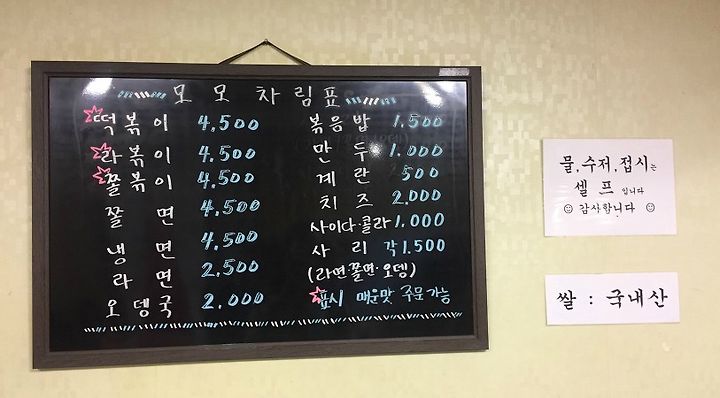 모모차림표
떡볶이 4,500
라볶이 4,500
쫄볶이 4,500
쫄면 4,500
냉면 4,500
라면 2,500
오뎅국 2,000
볶음밥 1,500
만두 1,000
계란 500
치즈 2,000
사이다·콜라 1,000
사리 각 1,500
(라면·쫄면·오뎅)
표시 매운맛 주문가능
물,수저,접시는
셀프 입니다
감사합니다
쌀 : 국내산